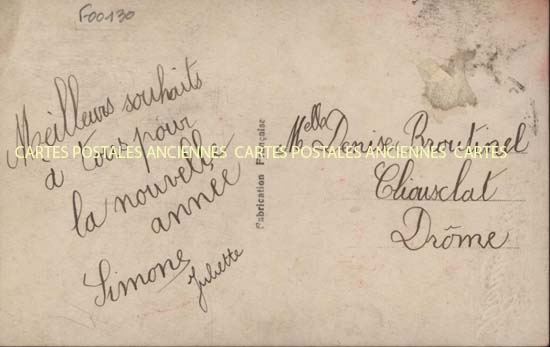 F00130
Meilleurs souhaits
à Tous pour
la nouvelle
année
Simone
Juliette
Fabrication Française
Melle Denise Broutinel
Cliousclat
Drôme
CARTES POSTALES ANCIENNES CARTES POSTALES ANCIENNES CARTES